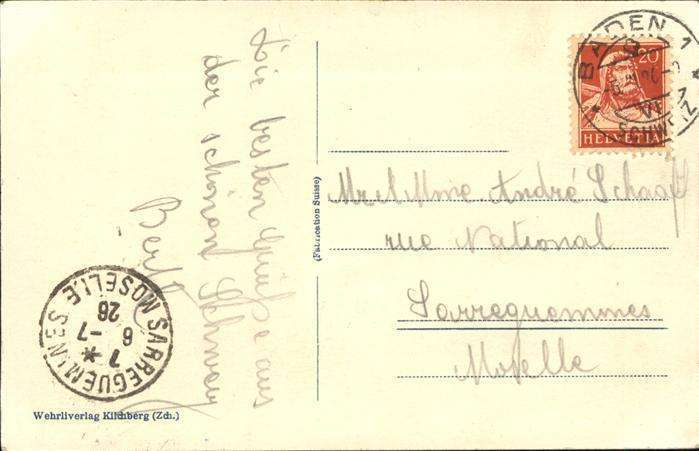 Die besten Grüße aus
der schönen Schweiz
Berty
(Fabrication Suisse)
Wehrliverlag Kilchberg (Zch.)
SARREGUEMINES
MOSELLE
7 *
6 -7
26
BADEN 1
SCHWEIZ
20
HELVETIA
Mr et Mme André Schaaff
rue National
Sarreguemines
Moselle